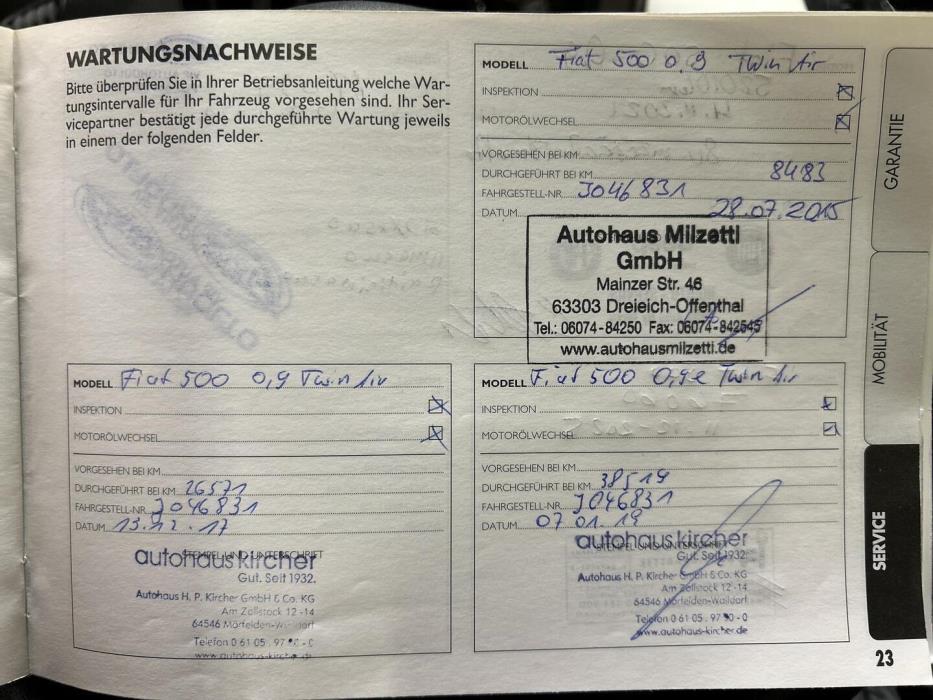 WARTUNGSNACHWEISE
Bitte überprüfen Sie in Ihrer Betriebsanleitung welche War-
tungsintervalle für Ihr Fahrzeug vorgesehen sind. Ihr Ser-
vicepartner bestätigt jede durchgeführte Wartung jeweils
in einem der folgenden Felder.
MODELL Fiat 500 0,9 Twin Air
INSPEKTION
MOTORÖLWECHSEL
VORGESEHEN BEI KM
DURCHGEFÜHRT BEI KM 8483
FAHRGESTELL-NR. J046831
DATUM 28.07.2015
Autohaus Milzetti
GmbH
Mainzer Str. 46
63303 Dreieich-Offenthal
Tel.: 06074-84250 Fax: 06074-842545
www.autohausmilzetti.de
MODELL Fiat 500 0,9 Twin Air
INSPEKTION
MOTORÖLWECHSEL
VORGESEHEN BEI KM
DURCHGEFÜHRT BEI KM 26571
FAHRGESTELL-NR. J046831
DATUM 13.12.17
STEMPEL UND UNTERSCHRIFT
autohaus kircher
Gut. Seit 1932.
Autohaus H. P. Kircher GmbH & Co. KG
Am Zollstock 12-14
64546 Mörfelden-Walldorf
Telefon 0 61 05 . 97 - 0
www.autohaus-kircher.de
MODELL Fiat 500 0,9 Twin Air
INSPEKTION
MOTORÖLWECHSEL
VORGESEHEN BEI KM
DURCHGEFÜHRT BEI KM 38519
FAHRGESTELL-NR. J046831
DATUM 07 01. 19
STEMPEL UND UNTERSCHRIFT
autohaus kircher
Gut. Seit 1932.
Autohaus H. P. Kircher GmbH & Co. KG
Am Zollstock 12-14
64546 Mörfelden-Walldorf
Telefon 0 61 05 . 97 - 0
www.autohaus-kircher.de
GARANTIE
MOBILITÄT
SERVICE
23